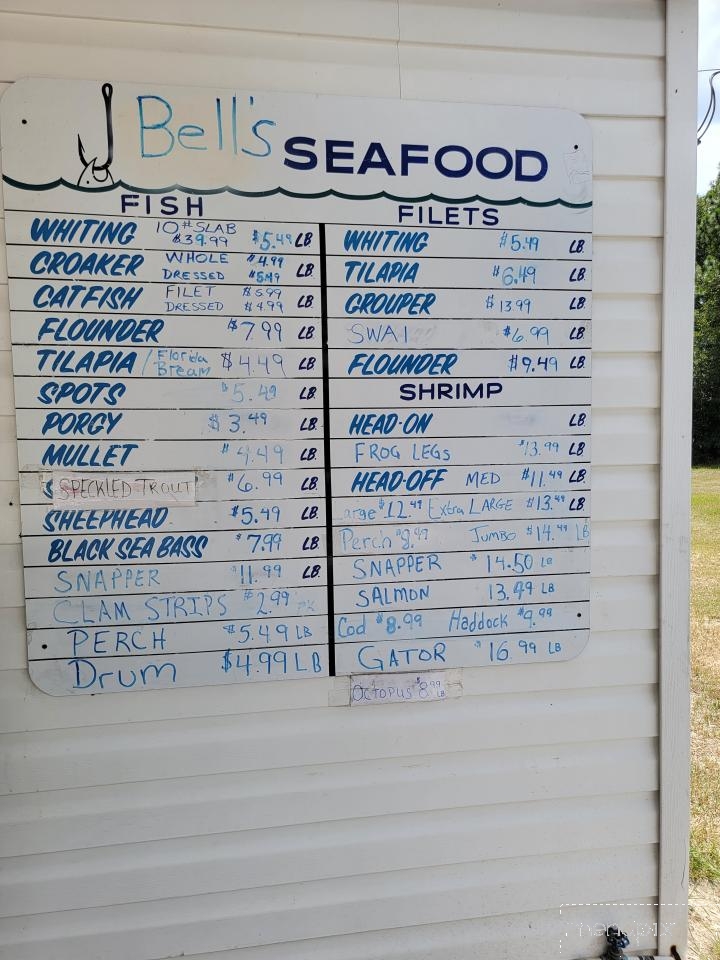 Bell's SEAFOOD
FISH
WHITING 10# SLAB $39.99 $5.49 LB.
CROAKER WHOLE $4.99
DRESSED $5.49 LB.
CATFISH FILET $6.99
DRESSED $4.99 LB.
FLOUNDER $7.99 LB.
TILAPIA / Florida Bream $4.49 LB.
SPOTS $5.49 LB.
PORGY $3.49 LB.
MULLET $4.49 LB.
SPECKLED TROUT $6.99 LB.
SHEEPHEAD $5.49 LB.
BLACK SEA BASS $7.99 LB.
SNAPPER $11.99 LB.
CLAM STRIPS $2.99 PK
PERCH $5.49 LB
Drum $4.99 LB
FILETS
WHITING $5.49 LB.
TILAPIA $6.49 LB.
GROUPER $13.99 LB.
SWAI $6.99 LB.
FLOUNDER $9.49 LB.
SHRIMP
HEAD-ON LB.
FROG LEGS $13.99 LB.
HEAD-OFF MED $11.49 LB.
arge $12.49 Extra LARGE $13.49 LB.
Perch $8.49 JUMBO $14.49 LB
SNAPPER $14.50 LB
SALMON 13.49 LB
Cod $8.99 Haddock $9.99
GATOR $16.99 LB
OCTOPUS $8.99 LB